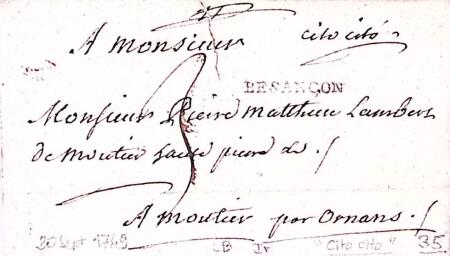 A Monsieur cito cito
3
BESANÇON
Monsieur Pierre Matthieu Lambert
de Moutier haute pierre de ./
A Moutier por Ornans ./
20 Sept 1749 "Cito cito" 35